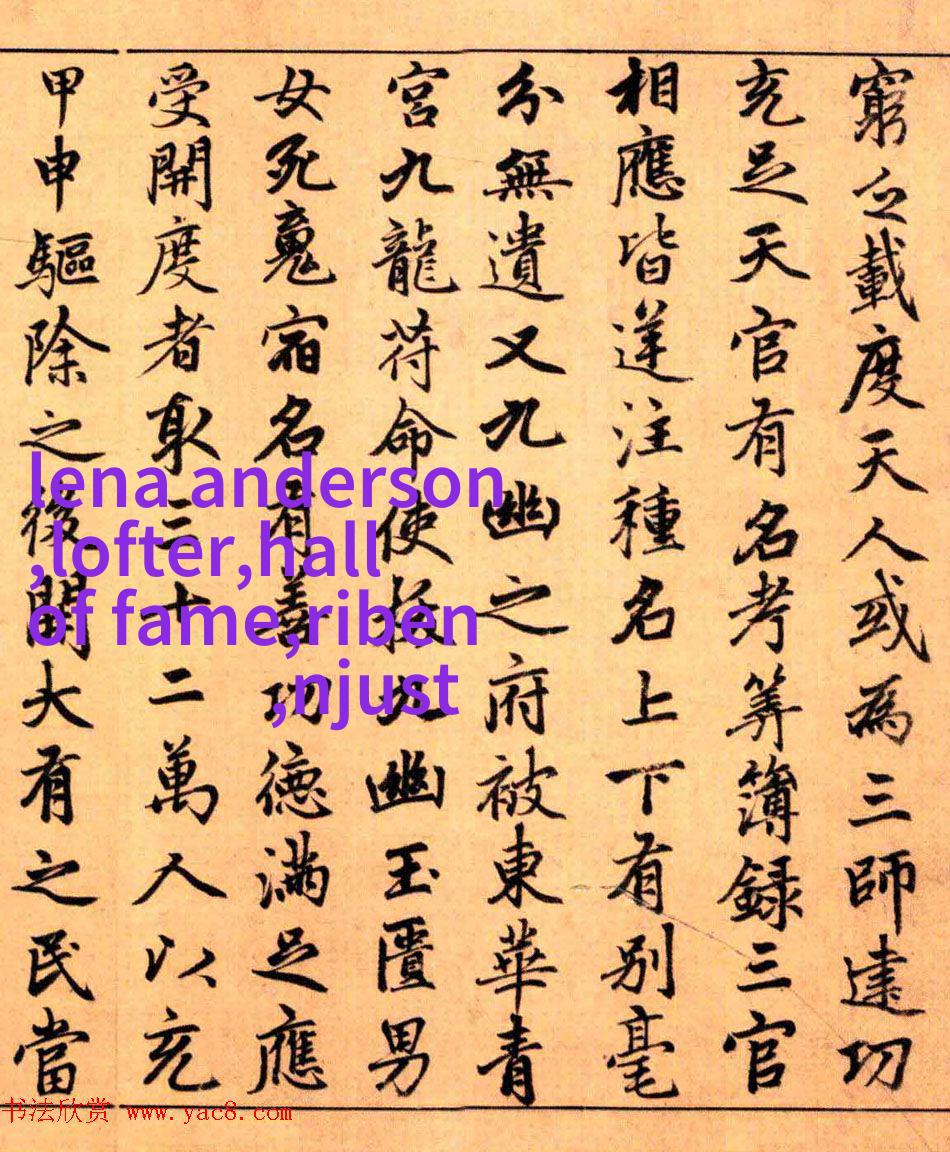 窮之載度天人或為三師建功
充足天官有名考筭簿録三官
相應皆逆注種名上下有別毫
分無遺又九幽之府被東華青
宮九龍符命使拔九幽玉匱男
女死魂宿名有善功德滿足應
受開度者取三十二萬人以充
甲申驅除之後開大有之民當
lena anderson
,lofter,hall
of fame,riben
,njust
书法欣赏 www.yac8.com